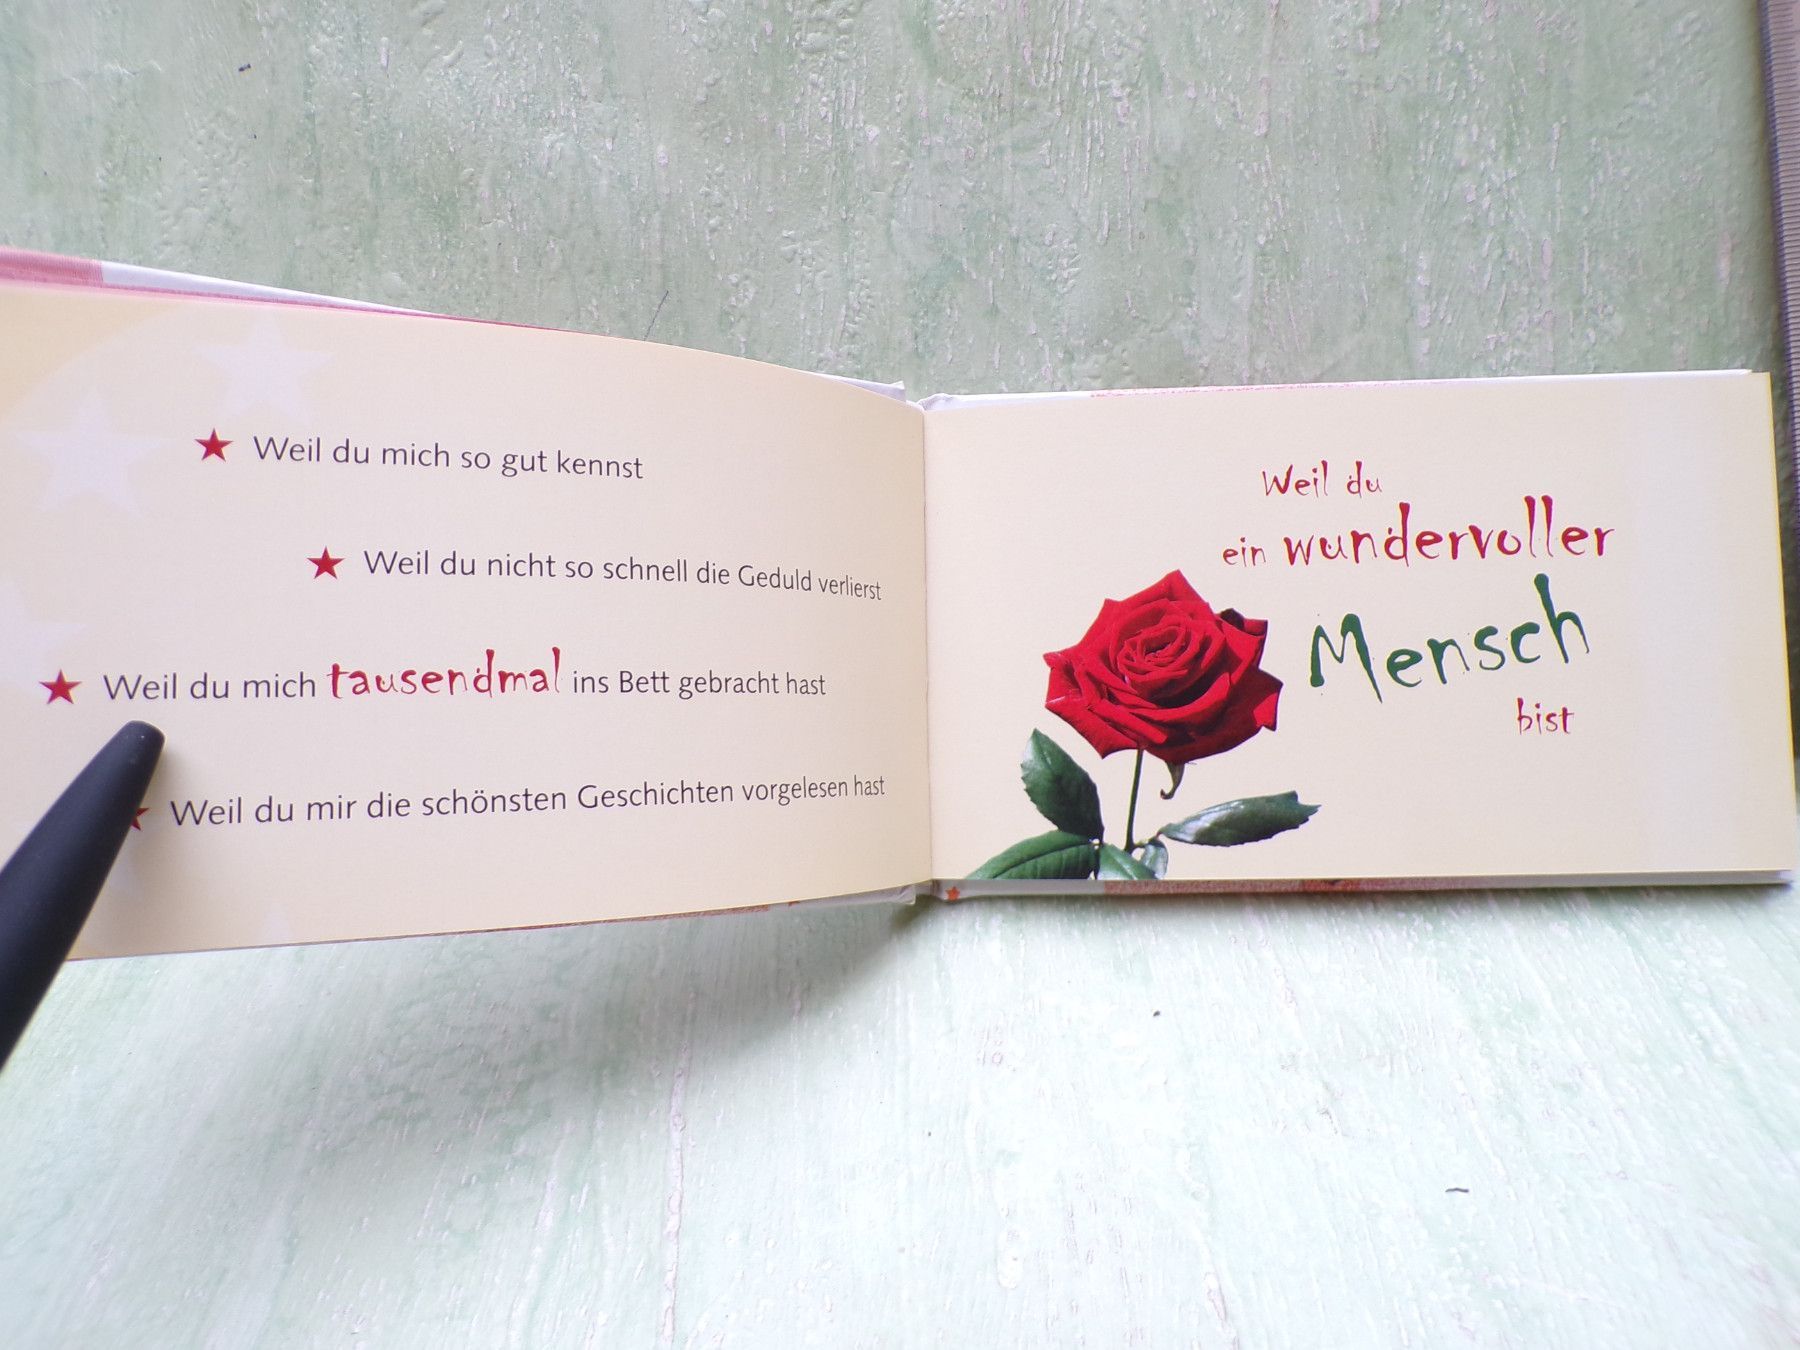 Weil du mich so gut kennst
Weil du nicht so schnell die Geduld verlierst
Weil du mich tausendmal ins Bett gebracht hast
Weil du mir die schönsten Geschichten vorgelesen hast
Weil du
ein wundervoller
Mensch
bist